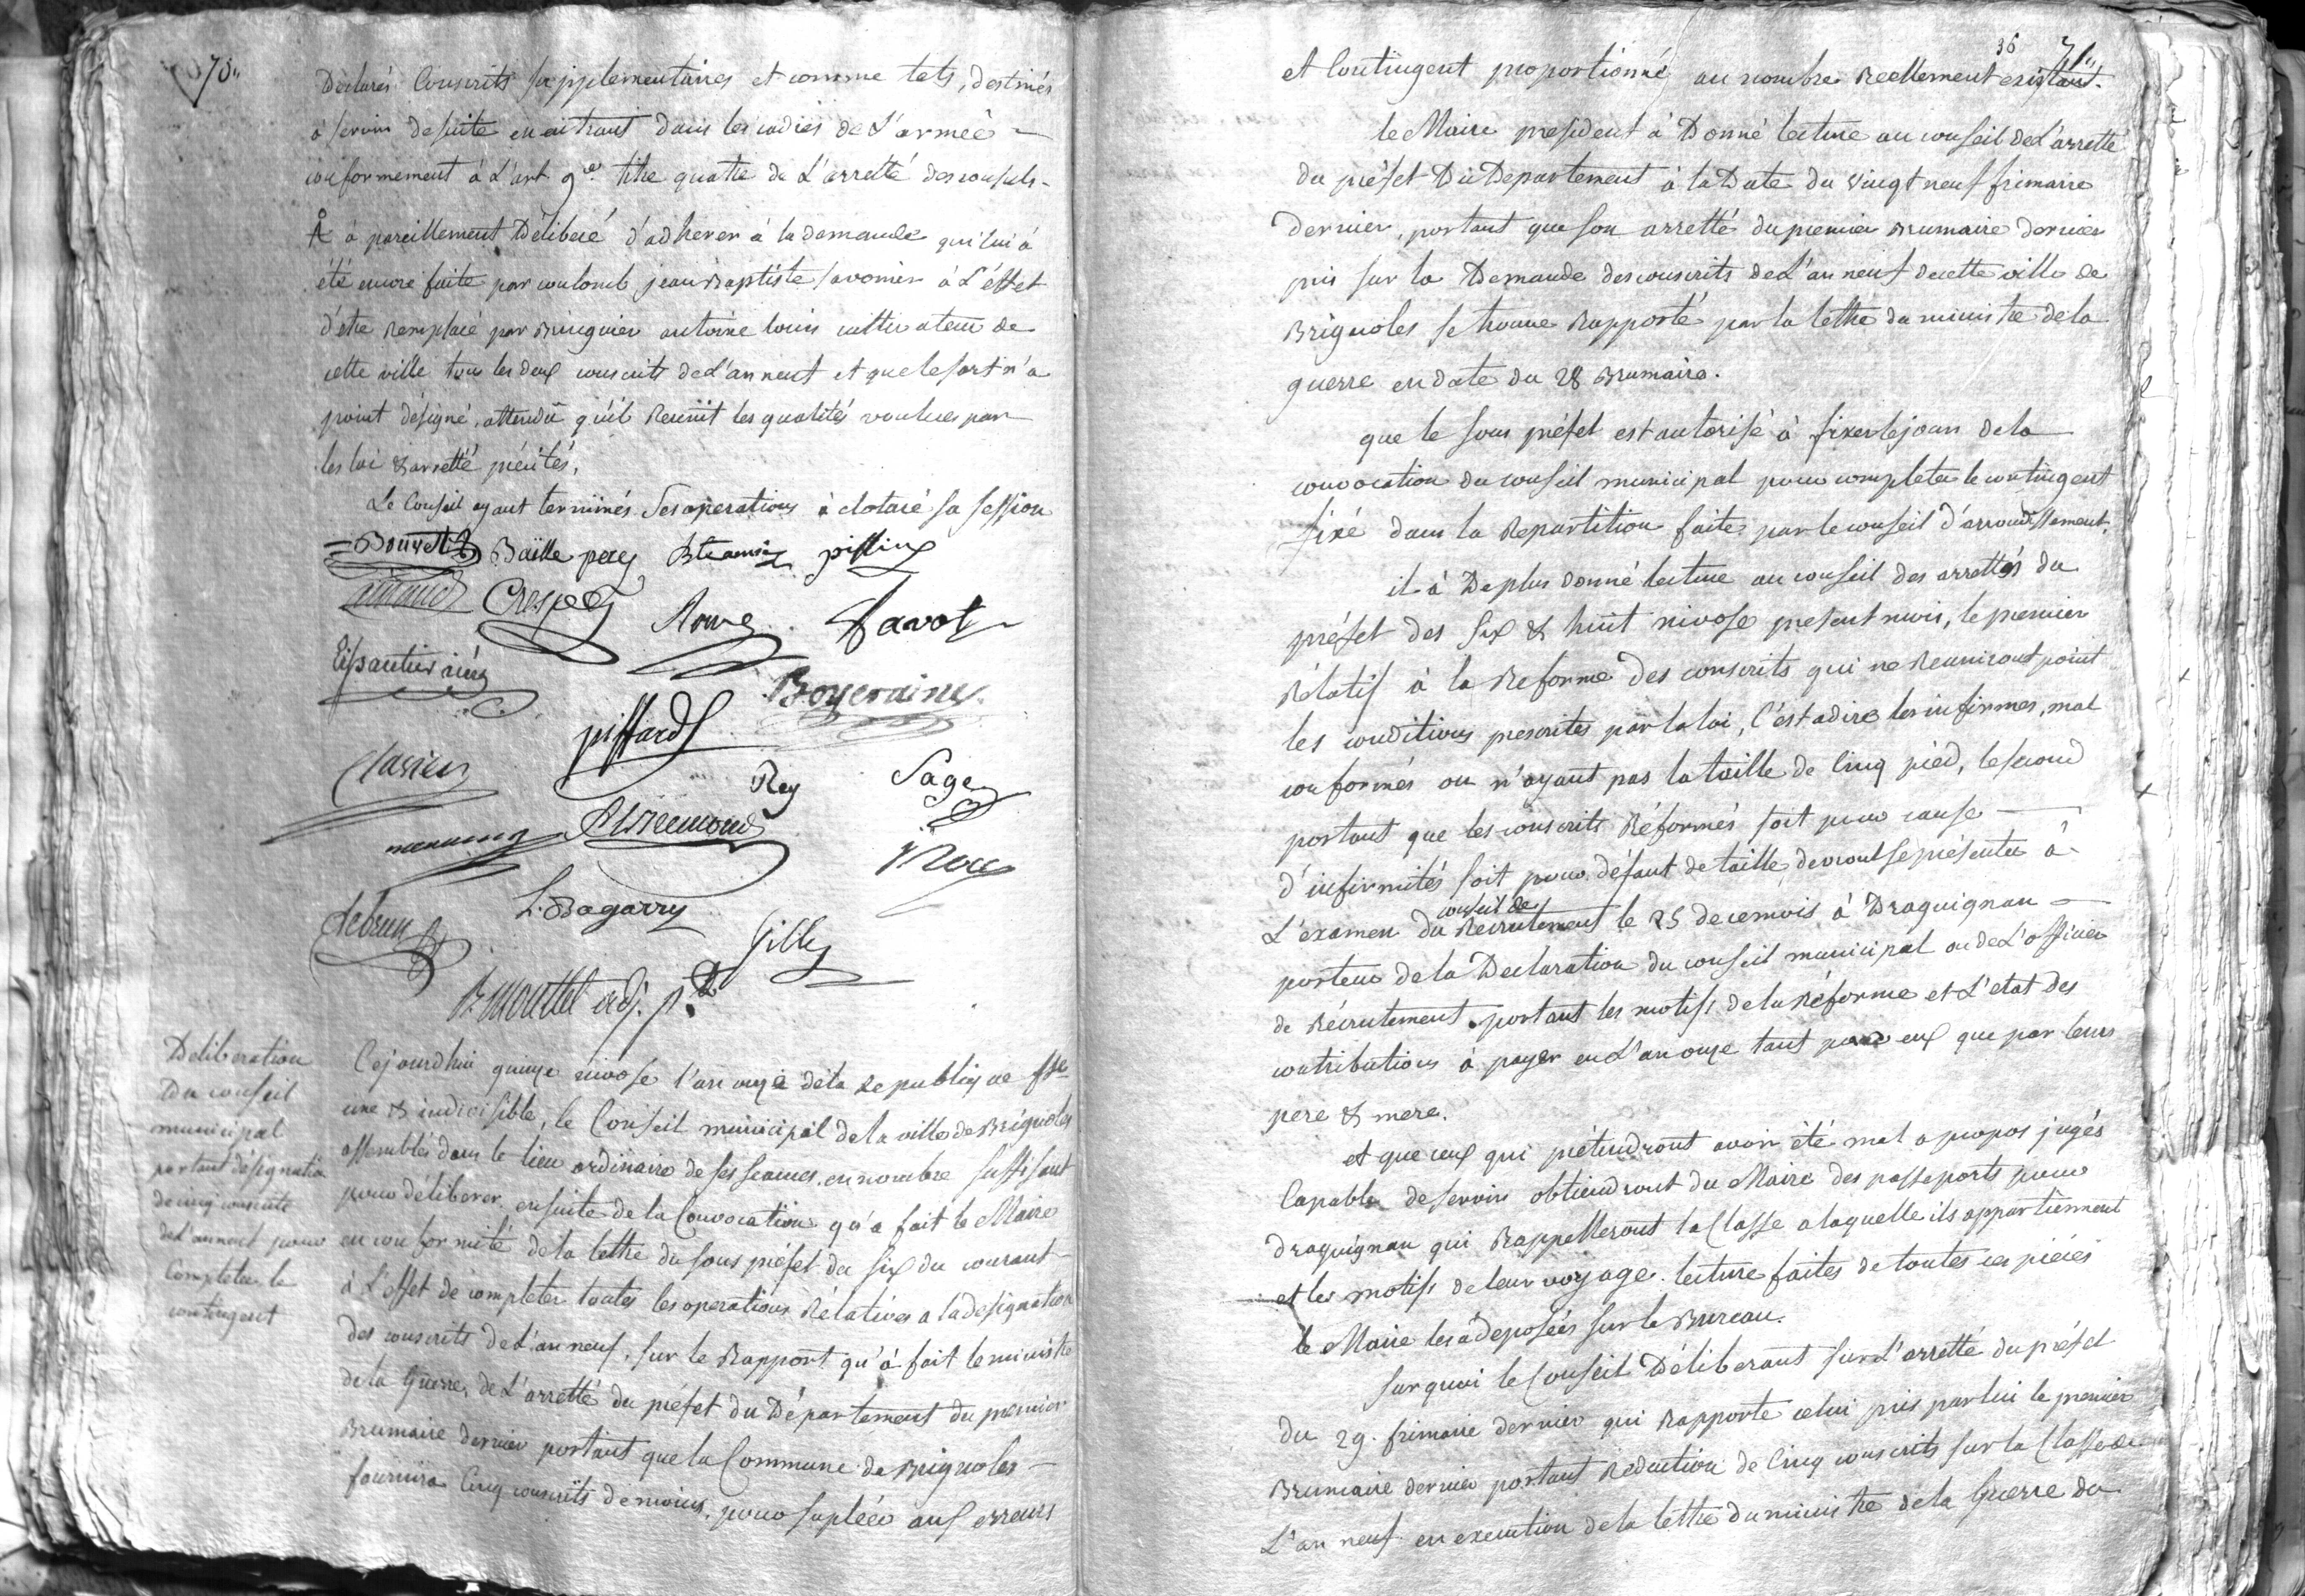 70"
Déclarés Conscrits supplementaires et comme tels, destinés
à servir desuite en entrant dans les cadres de L'armeé
conformement à L'art 9.e titre quatre de L'arretté des consuls.
A à pareillement Déliberé d'adherer à la demande qui lui à
été encore faite par coulomb jean Baptiste savonier à L'éffet
d'être Remplacé par Bringuier antoine louis cultivateur de
cette ville tous les deux conscrits de L'an neuf et que le sort n'a
point désigné, attendû qu'il Reunit les qualités voulues par
les loi & arretté précités.
Le Conseil ayant terminés Ses operations à cloturé sa session
Bonnet Baille pere
Crespe Roux Favot
aîné
piffard Boyer ainé
Clavier Rey Sage
L. Bagarry
lebrun Gilly
Mouttet adj. p.
Deliberation
Du conseil
municipal
portant désignation
de cinq conscrits
de L'an neuf pour
Completer le
contingent
Cejourdhui quinze nivose l'an onze dela Republique fse
une & indivisible, le Conseil municipal dela ville de Brignoles
assemblés dans le lieu ordinaire de ses seances, en nombre suffisant
pour déliberer ensuite de la Convocation qu'a fait le Maire
en conformité dela lettre du sous préfet du six du courant
à L'effet de completer toutes les operations Rélatives a la designation
des conscrits de L'an neuf, sur le Rapport qu'à fait le ministre
dela Guerre, de L'arretté du préfet du Département du premier
Brumaire dernier portant que la Commune de Brignoles
fournira Cinq conscrits de moins, pour supléer aux erreurs
36 71"
et Contingent proportionné au nombre Reellement existant.
le Maire president à Donné lecture au conseil de L'arretté
du préfet Du Departement à la Date du vingt neuf frimaire
dernier, portant que son arretté du premier Brumaire dernier
pris sur la Demande des conscrits de L'an neuf de cette ville de
Brignoles se trouve Rapporté par la lettre du ministre dela
guerre en date du 28 Brumaire.
que le sous préfet est autorisé à fixer le jour dela
convocation du conseil municipal pour completer le contingent
fixé dans la Repartition faite par le conseil d'arrondissement.
il à De plus donné lecture au conseil des arrettés du
préfet des six & huit nivose present mois, le premier
Rélatif à la Reforme des conscrits qui ne Reuniront point
les conditions prescrites par la loi, C'est adire les infirmes, mal
conformés ou n'ayant pas la taille de Cinq pied, le second
portant que les conscrits Réformés soit pour cause
d'infirmités soit pour défaut de taille devront se présenter à
conseil de
L'examen du Recrutement le 25 de ce mois à Draguignan
porteur de la Declaration du conseil municipal ou de L'officier
de Récrutement portant les motifs de la Réforme et L'etat des
contributions à payer en L'an onze tant pour eux que par leurs
pere & mere.
et que ceux qui prétendront avoir été mal a propos jugés
Capable de servir obtiendront du Maire des passeports pour
draguignan qui Rappelleront la Classe a laquelle ils appartiennent
et les motifs de leur voyage. lecture faites de toutes ces pièces
le Maire les à deposées sur le Bureau.
sur quoi le Conseil Déliberant sur L'arretté du préfet
du 29. frimaire dernier qui Rapporte celui pris par lui le premier
Brumaire dernier portant Réduction de Cinq conscrits sur la Classe de
L'an neuf en execution de la lettre du ministre dela Guerre du